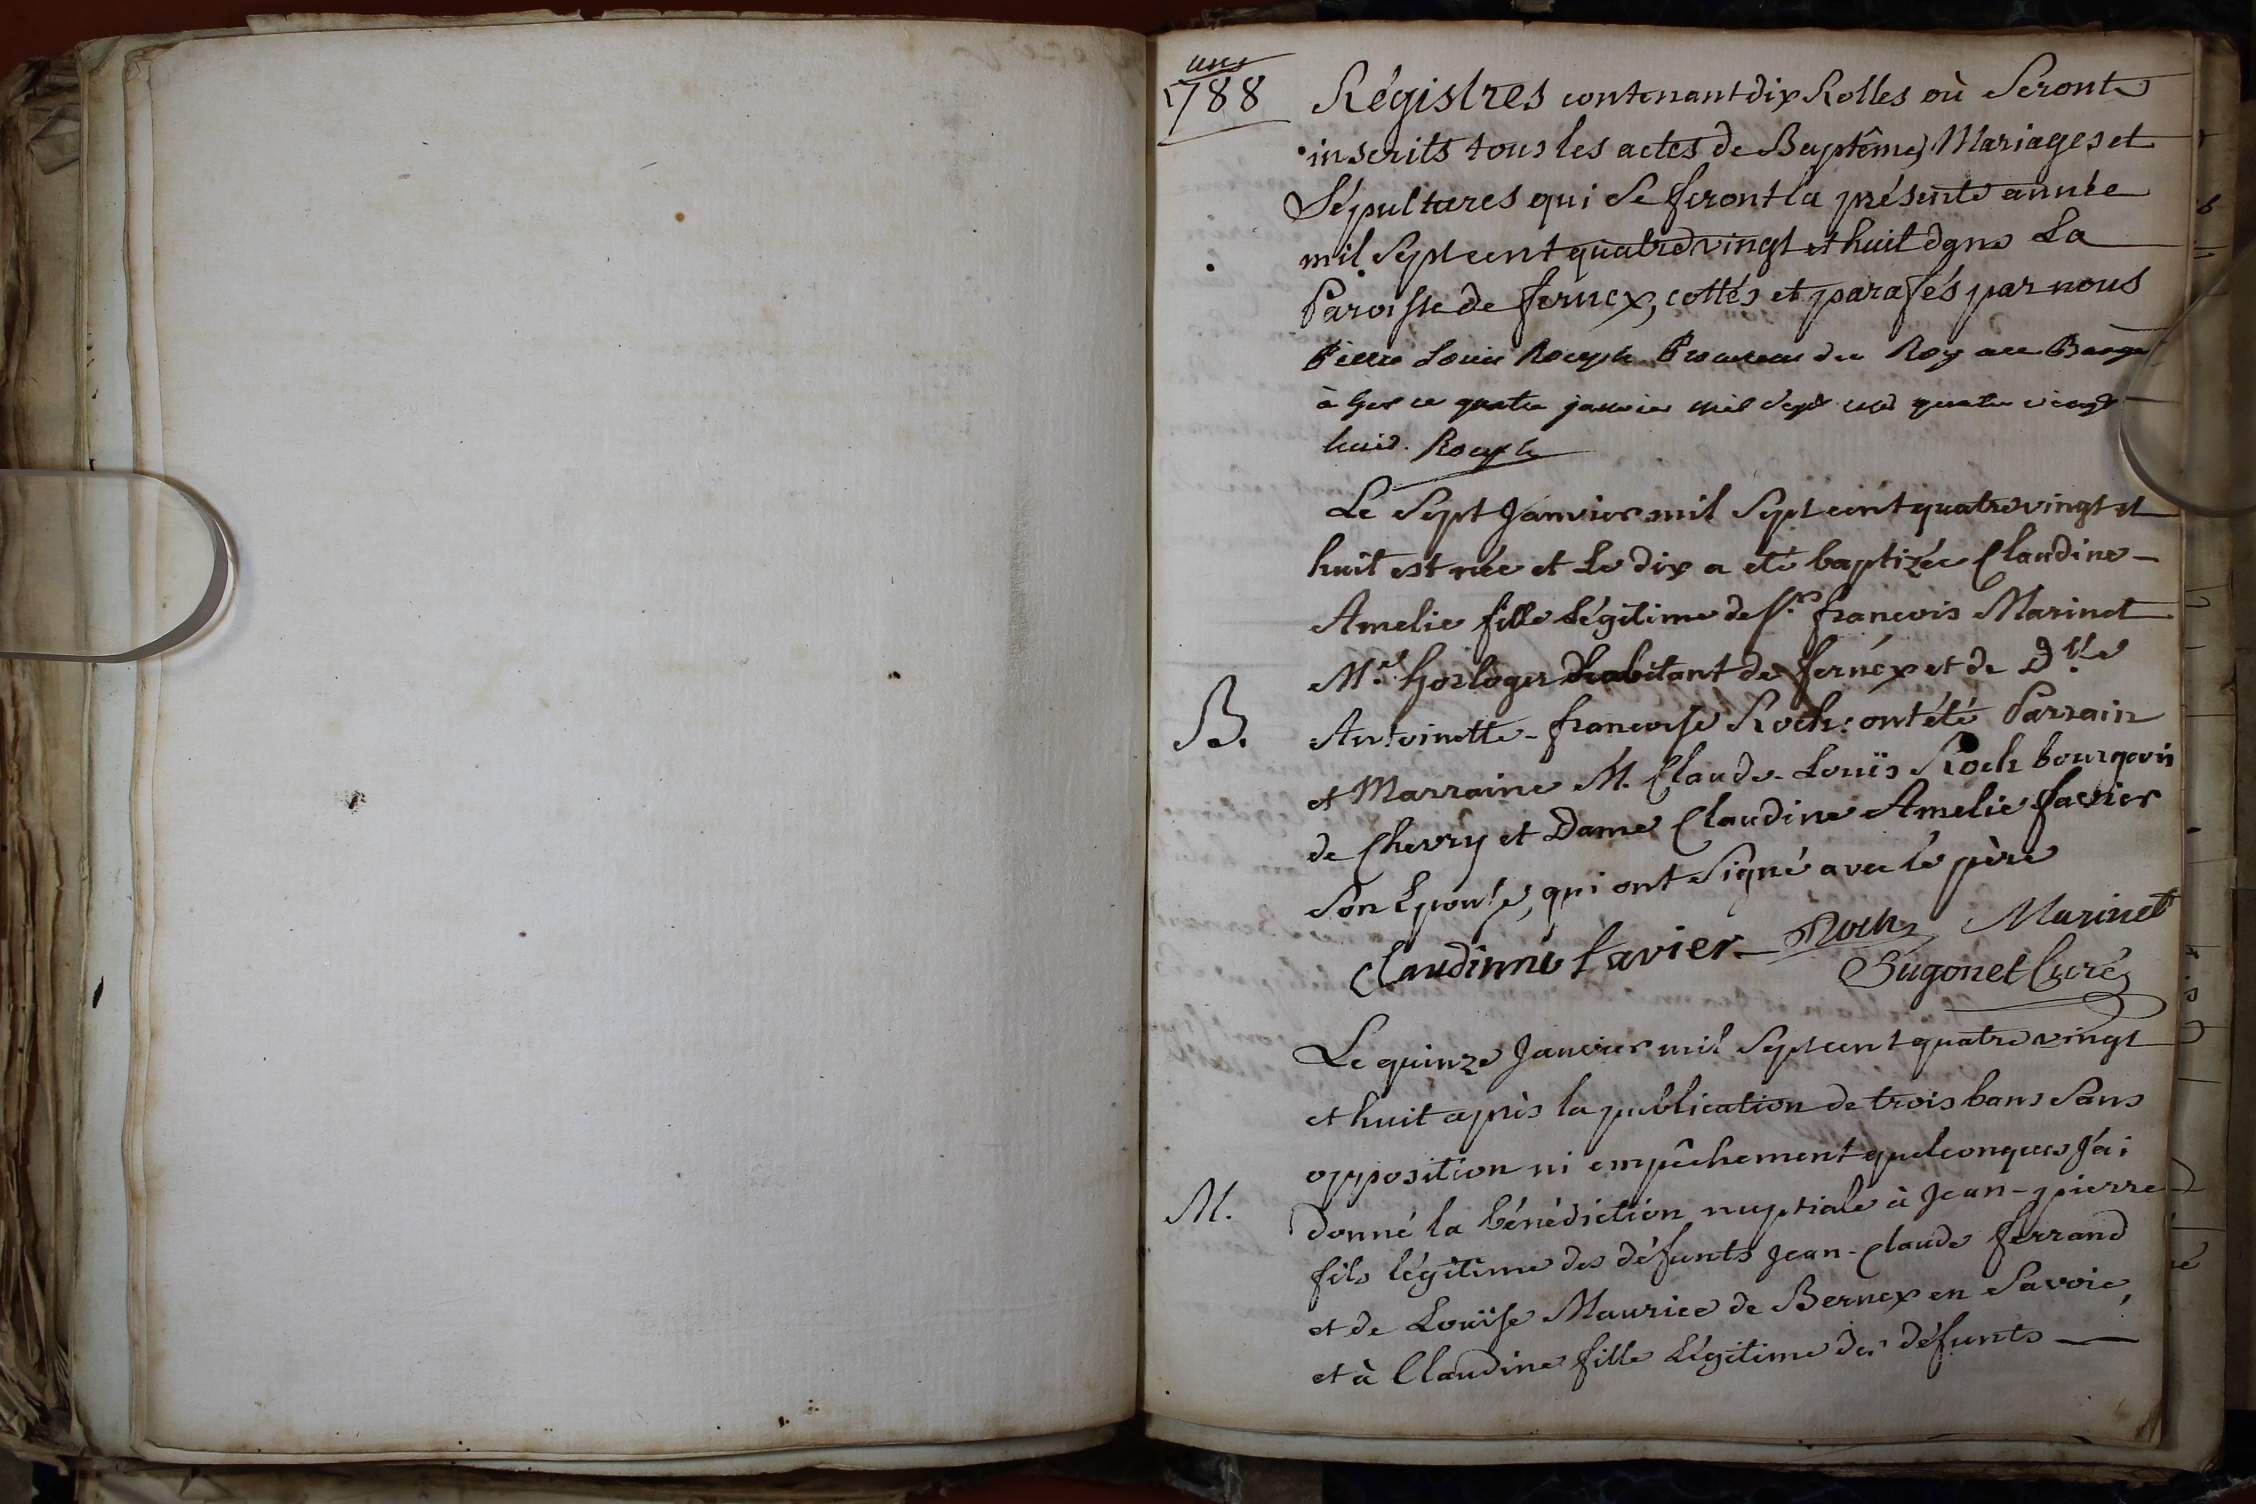 une
1788
Régistres contenant dix Rolles où Seront
inscrits tous les actes de Baptême, Mariages et
Sépultures qui Se feront la présente année
mil Sept cent quatre vingt et huit dans La
Paroisse de fernex, cottés et parafés par nous
Pierre Louis Rouph Procureur du Roy au Baage
à Gex ce quatre janvier mil Sept cent quatre vingt
huit. Rouph
Le Sept Janvier mil Sept cent quatre vingt et
huit est née et Le dix a eté baptizée Claudine
Amelie fille Légitime de Sr. francois Marinet
B.
M.e horloger habitant de fernéx et de D.lle
Antoinette-francoise Roch: ont été Parrain
et Marraine M. Claude-Louïs Roch bourgeois
de Chevry et Dame Claudine Amelie favier
Son Epouse, qui ont Signé avec le père
Claudinne favier Roch Marinet
Bugonet Curé
Le quinze Janvier mil Sept cent quatre vingt
et huit après la publication de trois bans Sans
opposition ni empêchement quelconques J'ai
M.
donné la bénédiction nuptiale à Jean-pierre
fils légitime des défunts Jean-Claude ferrand
et de Louïse Maurice de Bernex en Savoie,
et à Claudine fille Légitime des défunts